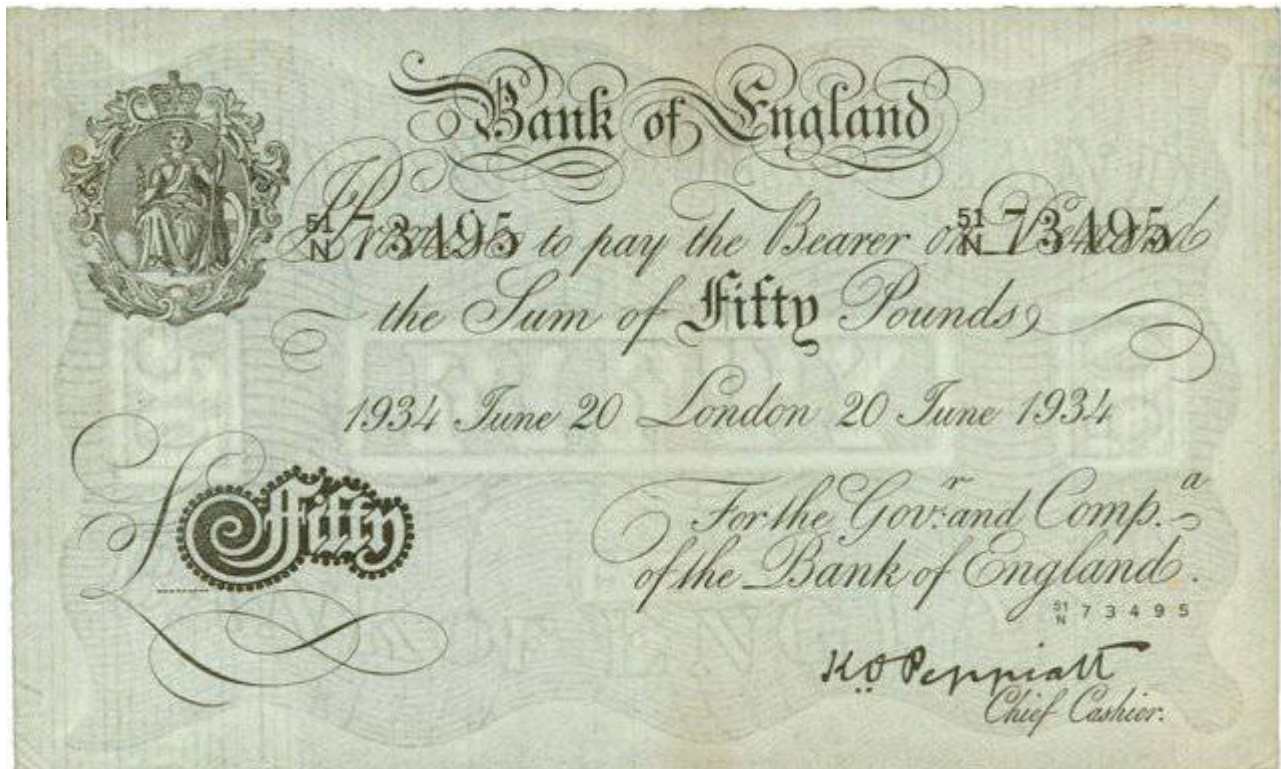 Bank of England
I Promise to pay the Bearer on Demand
51 N 73495 51 N 73495
the Sum of Fifty Pounds
1934 June 20 London 20 June 1934
£ Fifty
For the Gov.r and Comp.a
of the Bank of England.
51 N 73495
K.O. Peppiatt
Chief Cashier.